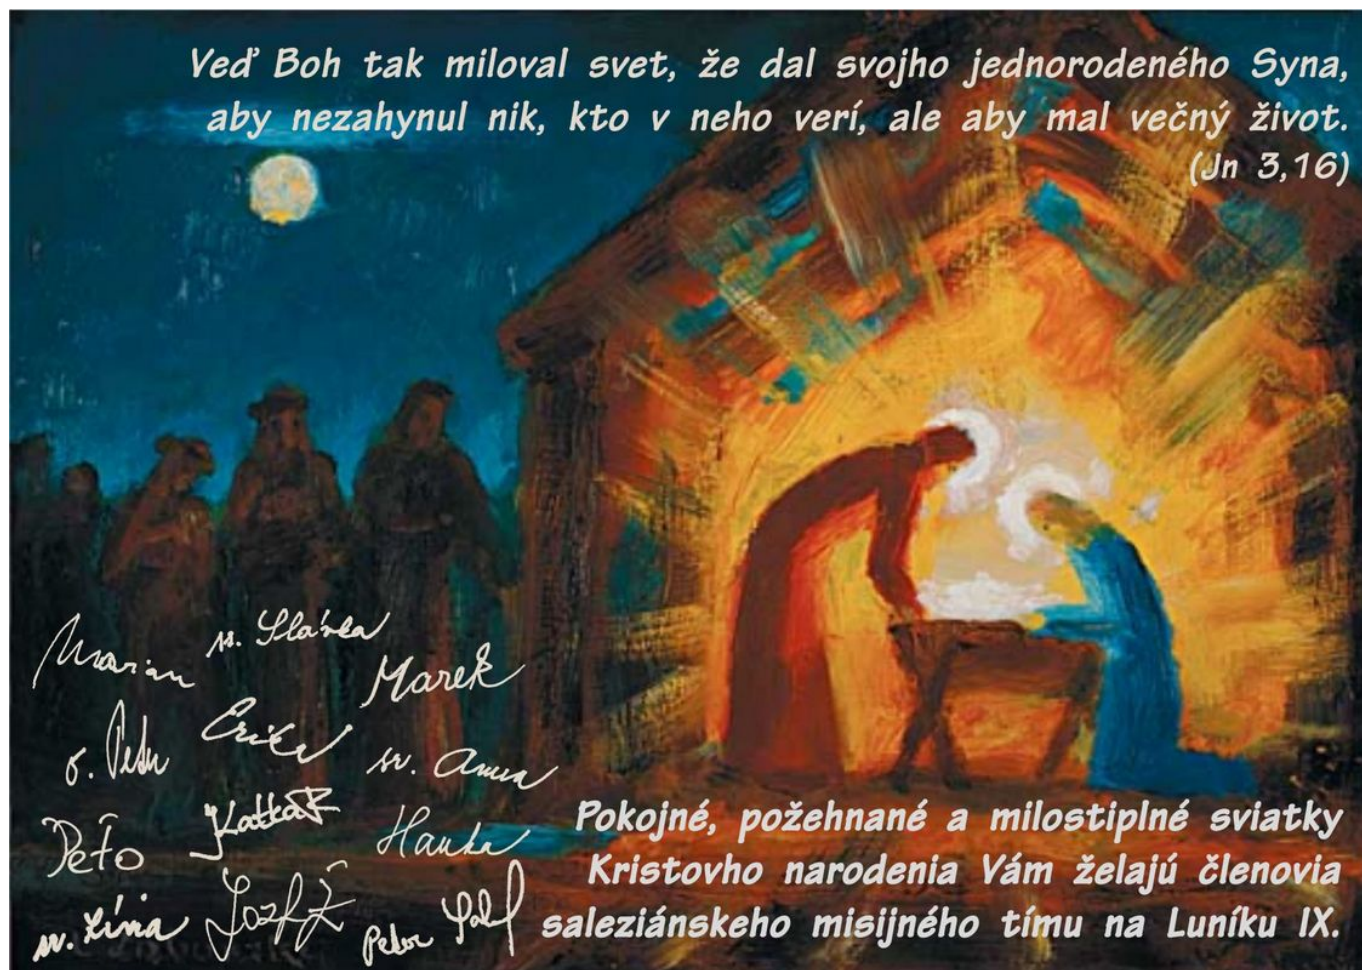 Veď Boh tak miloval svet, že dal svojho jednorodeného Syna,
aby nezahynul nik, kto v neho verí, ale aby mal večný život.
(Jn 3,16)
Marian
sr. Slávka
Marek
o. Peter
Erika
sr. Anna
Peťo
Katka
Hanka
sr. Lívia
Jozef
Peter
Pokojné, požehnané a milostiplné sviatky
Kristovho narodenia Vám želajú členovia
saleziánskeho misijného tímu na Luníku IX.